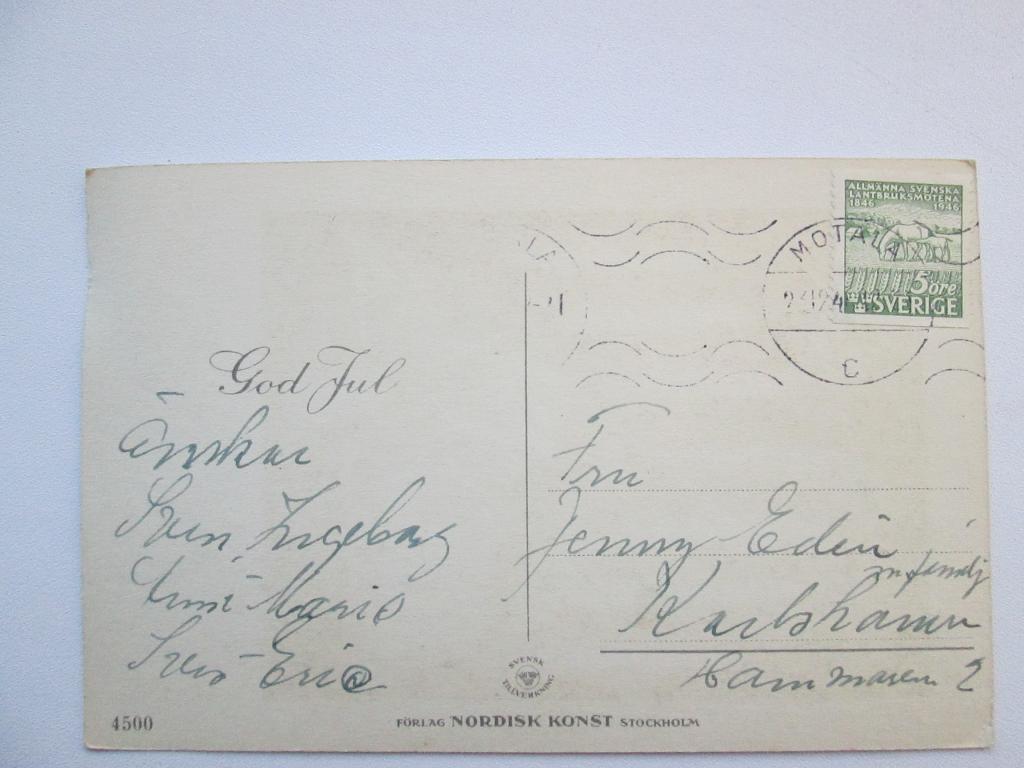 ALLMÄNNA SVENSKA
LANTBRUKSMÖTENA
1846 1946
5 öre
SVERIGE
MOTALA
C
LA
God Jul
Önskar
Sven, Ingeborg
Marie
Sven-Eric
Fru
Jenny Edin
m familj
Karlshamn
Hamnmagasin 2
SVENSK
TILLVERKNING
4500
FÖRLAG NORDISK KONST STOCKHOLM